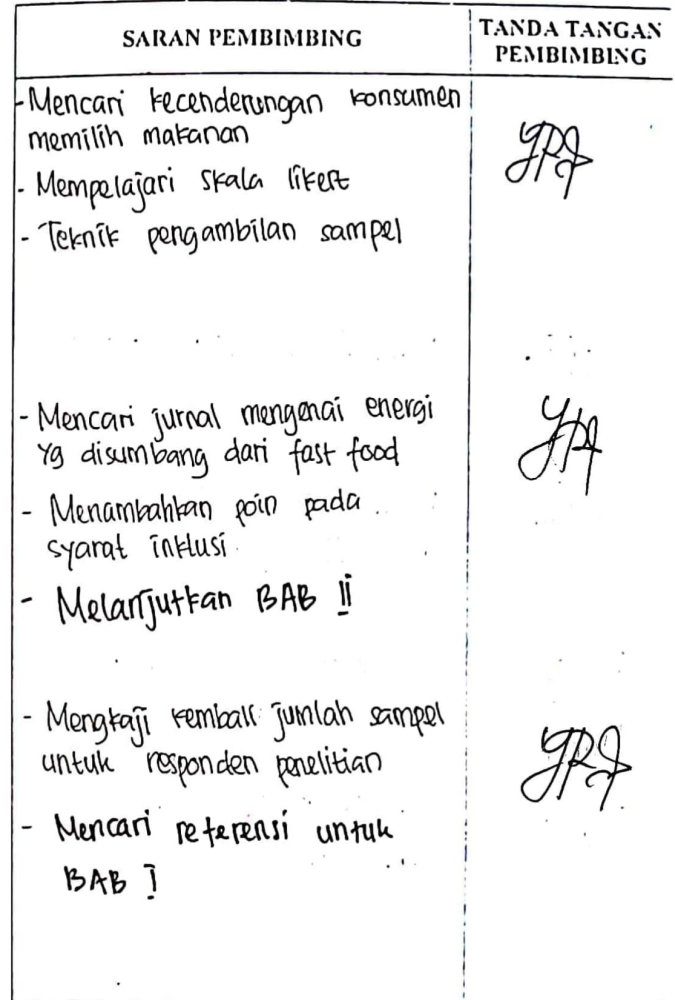 SARAN PEMBIMBING
TANDA TANGAN
PEMBIMBING
- Mencari kecenderungan konsumen
memilih makanan
- Mempelajari skala likert
- Teknik pengambilan sampel
- Mencari jurnal mengenai energi
yg disumbang dari fast food
- Menambahkan poin pada
syarat inklusi
- Melanjutkan BAB II
- Mengkaji kembali jumlah sampel
untuk responden penelitian
- Mencari referensi untuk
BAB I